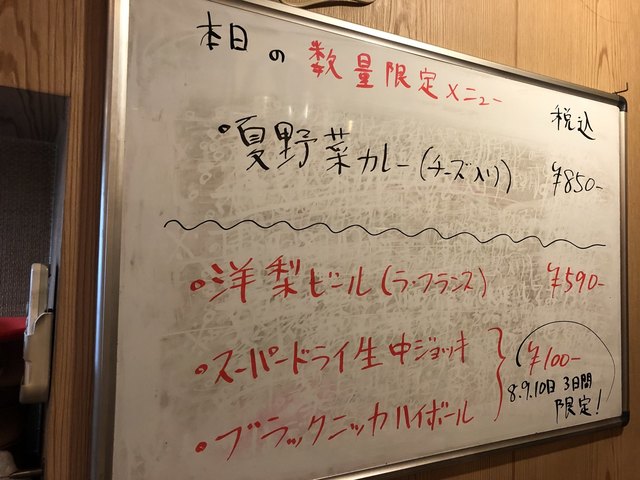 本日の数量限定メニュー
税込
・夏野菜カレー(チーズ入り) ¥850-
・洋梨ビール(ラ・フランス) ¥590-
・スーパードライ生中ジョッキ
・ブラックニッカハイボール
¥100-
8.9.10日 3日間
限定!